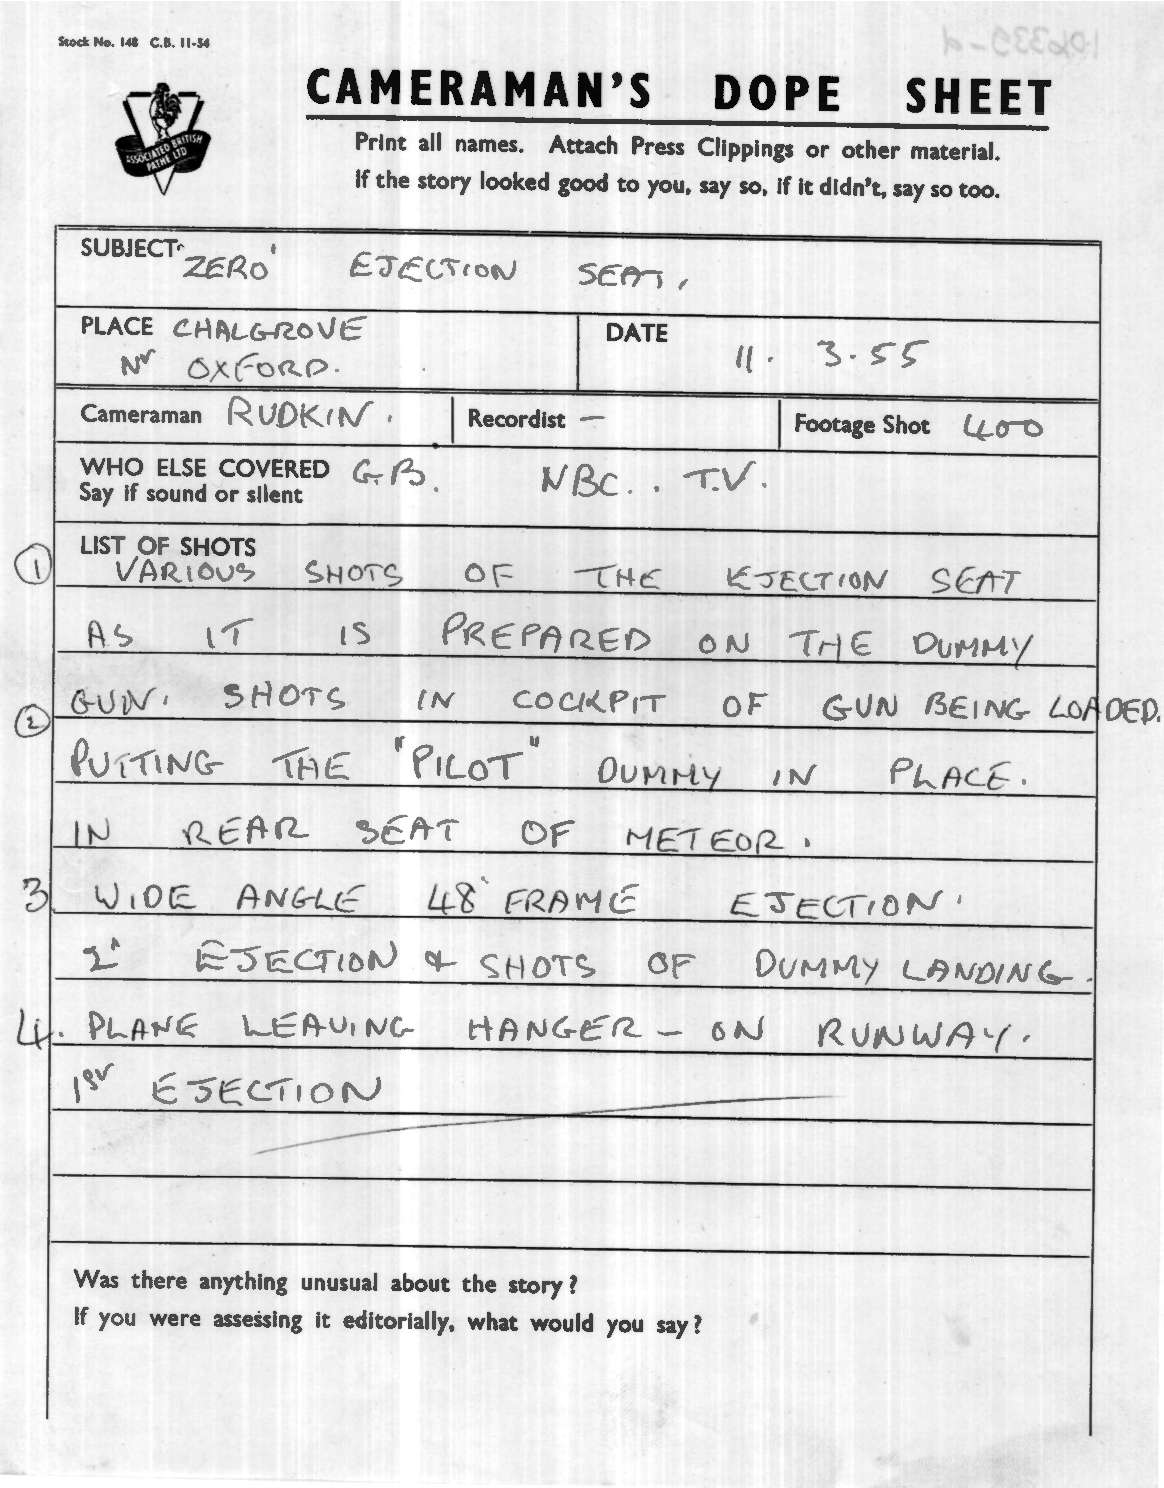 Stock No. 148 C.B. 11-54
ASSOCIATED BRITISH
PATHE LTD
CAMERAMAN'S DOPE SHEET
Print all names. Attach Press Clippings or other material.
If the story looked good to you, say so, if it didn't, say so too.
SUBJECT 'ZERO' EJECTION SEAT.
PLACE CHALGROVE
Nr OXFORD.
DATE 11. 3. 55
Cameraman RUDKIN.
Recordist —
Footage Shot 400
WHO ELSE COVERED G.B. NBC.. T.V.
Say if sound or silent
LIST OF SHOTS
1 VARIOUS SHOTS OF THE EJECTION SEAT
AS IT IS PREPARED ON THE DUMMY
GUN. SHOTS IN COCKPIT OF GUN BEING LOADED.
2 PUTTING THE "PILOT" DUMMY IN PLACE.
IN REAR SEAT OF METEOR.
3 WIDE ANGLE 48 FRAME EJECTION.
EJECTION & SHOTS OF DUMMY LANDING.
4. PLANE LEAVING HANGER - ON RUNWAY.
1ST EJECTION
Was there anything unusual about the story?
If you were assessing it editorially, what would you say?